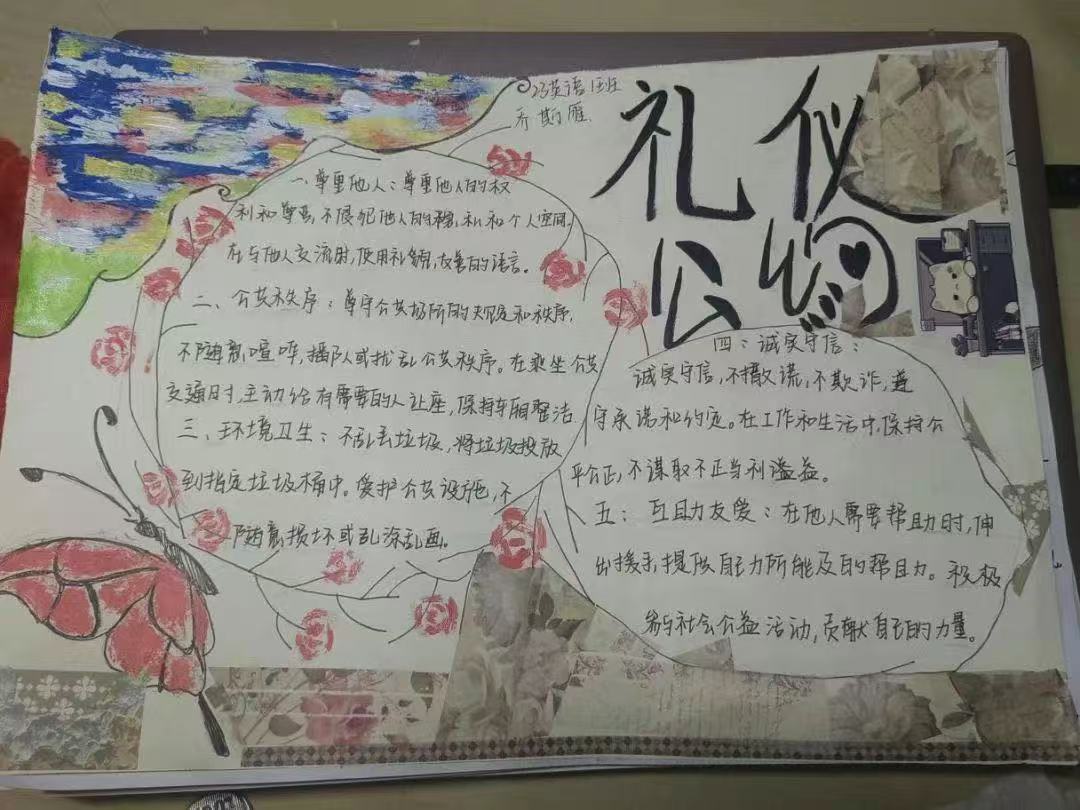 23英语1班
乔斯雁
礼仪
公德
一、尊重他人：尊重他人的权
利和尊严，不侵犯他人的隐私和个人空间。
在与他人交流时，使用礼貌，友善的语言。
二、公共秩序：遵守公共场所的规定和秩序，
不随意喧哗，插队或扰乱公共秩序。在乘坐公共
交通时，主动给有需要的人让座，保持车厢整洁
三、环境卫生：不乱丢垃圾，将垃圾投放
到指定垃圾桶中。爱护公共设施，不
随意损坏或乱涂乱画。
四：诚实守信：
诚实守信，不撒谎，不欺诈，遵
守承诺和约定。在工作和生活中，保持公
平公正，不谋取不正当利益。
五：互助友爱：在他人需要帮助时，伸
出援手，提供自己力所能及的帮助。积极
参与社会公益活动，贡献自己的力量。